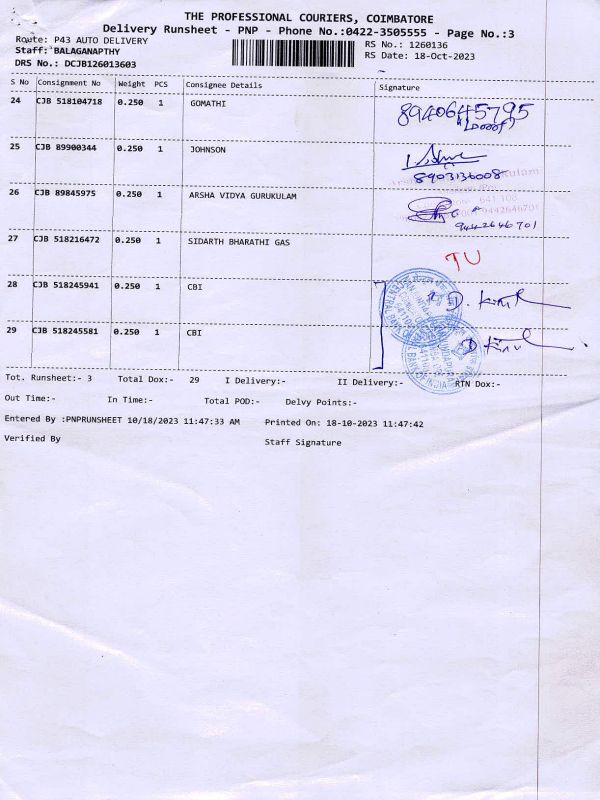 THE PROFESSIONAL COURIERS, COIMBATORE
Delivery Runsheet - PNP - Phone No.:0422-3505555 - Page No.:3
Route: P43 AUTO DELIVERY
Staff: BALAGANAPTHY
DRS No.: DCJB126013603
RS No.: 1260136
RS Date: 18-Oct-2023
S No Consignment No Weight PCS Consignee Details Signature
24 CJB 518104718 0.250 1 GOMATHI 8940645795
(Door)
25 CJB 89900344 0.250 1 JOHNSON
8903136008
26 CJB 89845975 0.250 1 ARSHA VIDYA GURUKULAM
9442646701
27 CJB 518216472 0.250 1 SIDARTH BHARATHI GAS
TU
28 CJB 518245941 0.250 1 CBI
29 CJB 518245581 0.250 1 CBI
Tot. Runsheet:- 3 Total Dox:- 29 I Delivery:- II Delivery:- RTN Dox:-
Out Time:- In Time:- Total POD:- Delvy Points:-
Entered By :PNPRUNSHEET 10/18/2023 11:47:33 AM Printed On: 18-10-2023 11:47:42
Verified By Staff Signature